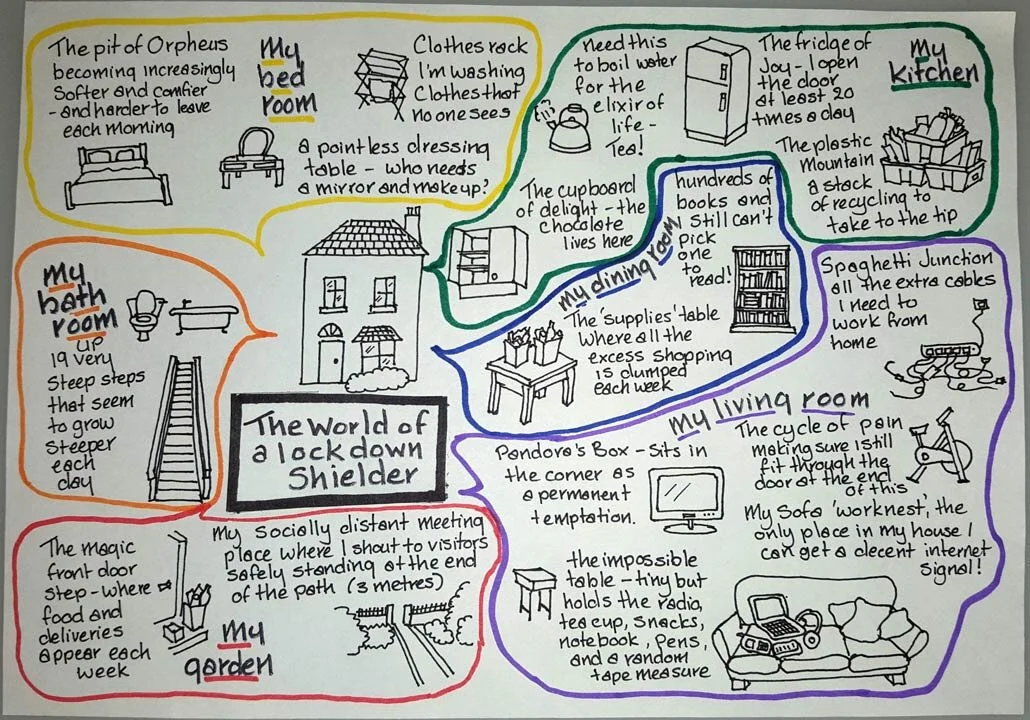 The pit of Orpheus
becoming increasingly
Softer and comfier
-and harder to leave
each morning
My
bed
room
Clothes rack
I'm washing
Clothes that
no one sees
a pointless dressing
table - who needs
a mirror and makeup?
need this
to boil water
for the
elixir of
life -
Tea!
The fridge of
Joy - I open
the door
at least 20
times a day
My
kitchen
The plastic
Mountain
a stack
of recycling to
take to the tip
The cupboard
of delight - the
chocolate
lives here
hundreds of
books and
Still can't
pick
one
to
read!
my dining room
The 'supplies' table
Where all the
excess shopping
is dumped
each week
My
bath
room
UP
19 very
Steep steps
that seem
to grow
Steeper
each
day
The World of
a lockdown
Shielder
Spaghetti Junction
all the extra cables
I need to
work from
home
My living room
Pandora's Box - Sits in
the corner as
a permanent
temptation.
The cycle of pain
making sure I still
fit through the
door at the end
of this
My Sofa 'worknest', the
only place in my house I
can get a decent internet
signal!
the impossible
table - tiny but
holds the radio,
tea cup, snacks,
notebook, pens,
and a random
tape measure
The magic
front door
step - where
food and
deliveries
appear each
week
My Socially distant meeting
place where I shout to visitors
safely standing at the end
of the path (3 metres)
My
garden